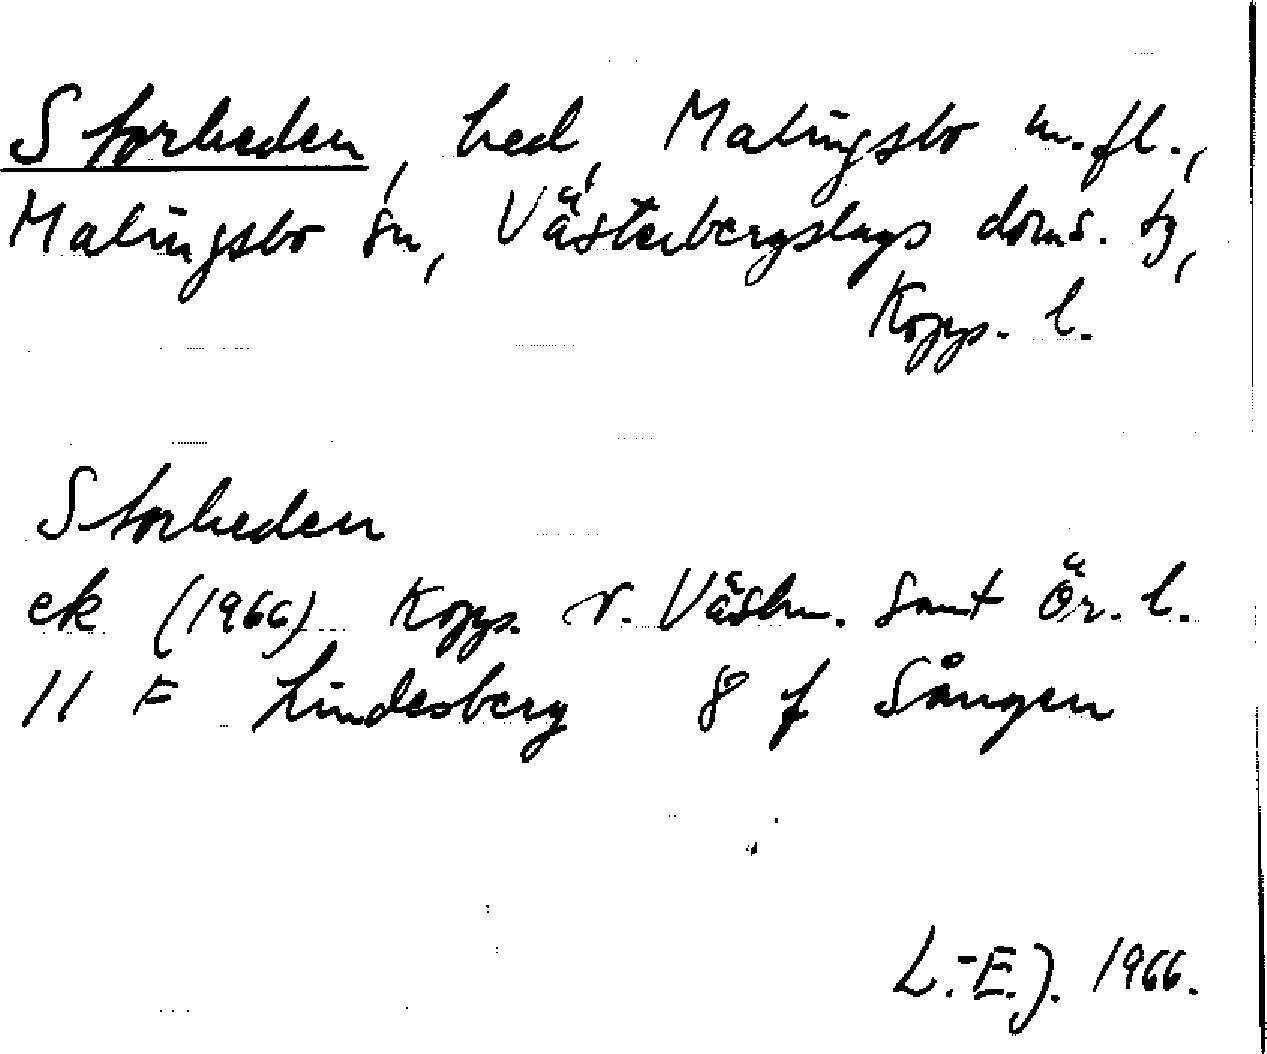 Storheden, hed, Malingsbo m.fl.,
Malingsbo sn, Västerbergslags doms. tg,
Kopp. l.
Storheden
ek (1966) Kopp. v. Västm. samt Ör. l.
11 F Lindesberg 8 f Sången
L.-E.J. 1966.